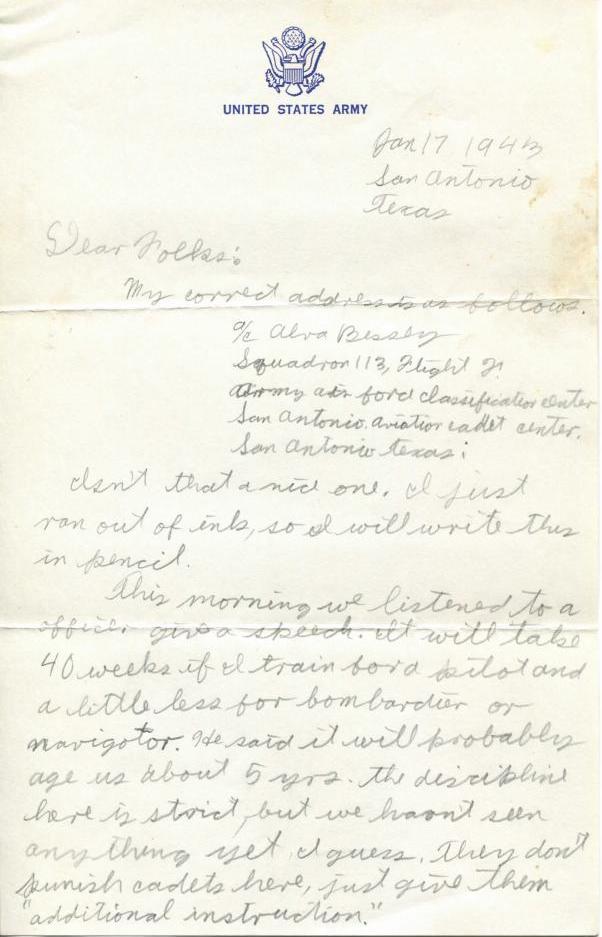 UNITED STATES ARMY
Jan 17 1943
San Antonio
Texas
Dear Folks:
My correct address is as follows.
a/c Alva Bessey
Squadron 113, Flight
Army air force classification center
San Antonio aviation cadet center.
San Antonio Texas:
Isn't that a nice one. I just
ran out of ink, so I will write this
in pencil.
This morning we listened to a
officer give a speech. It will take
40 weeks if I train for a pilot and
a little less for bombardier or
navigator. He said it will probably
age us about 5 yrs. The discipline
here is strict, but we havn't seen
anything yet I guess. They don't
punish cadets here, just give them
"additional instruction."